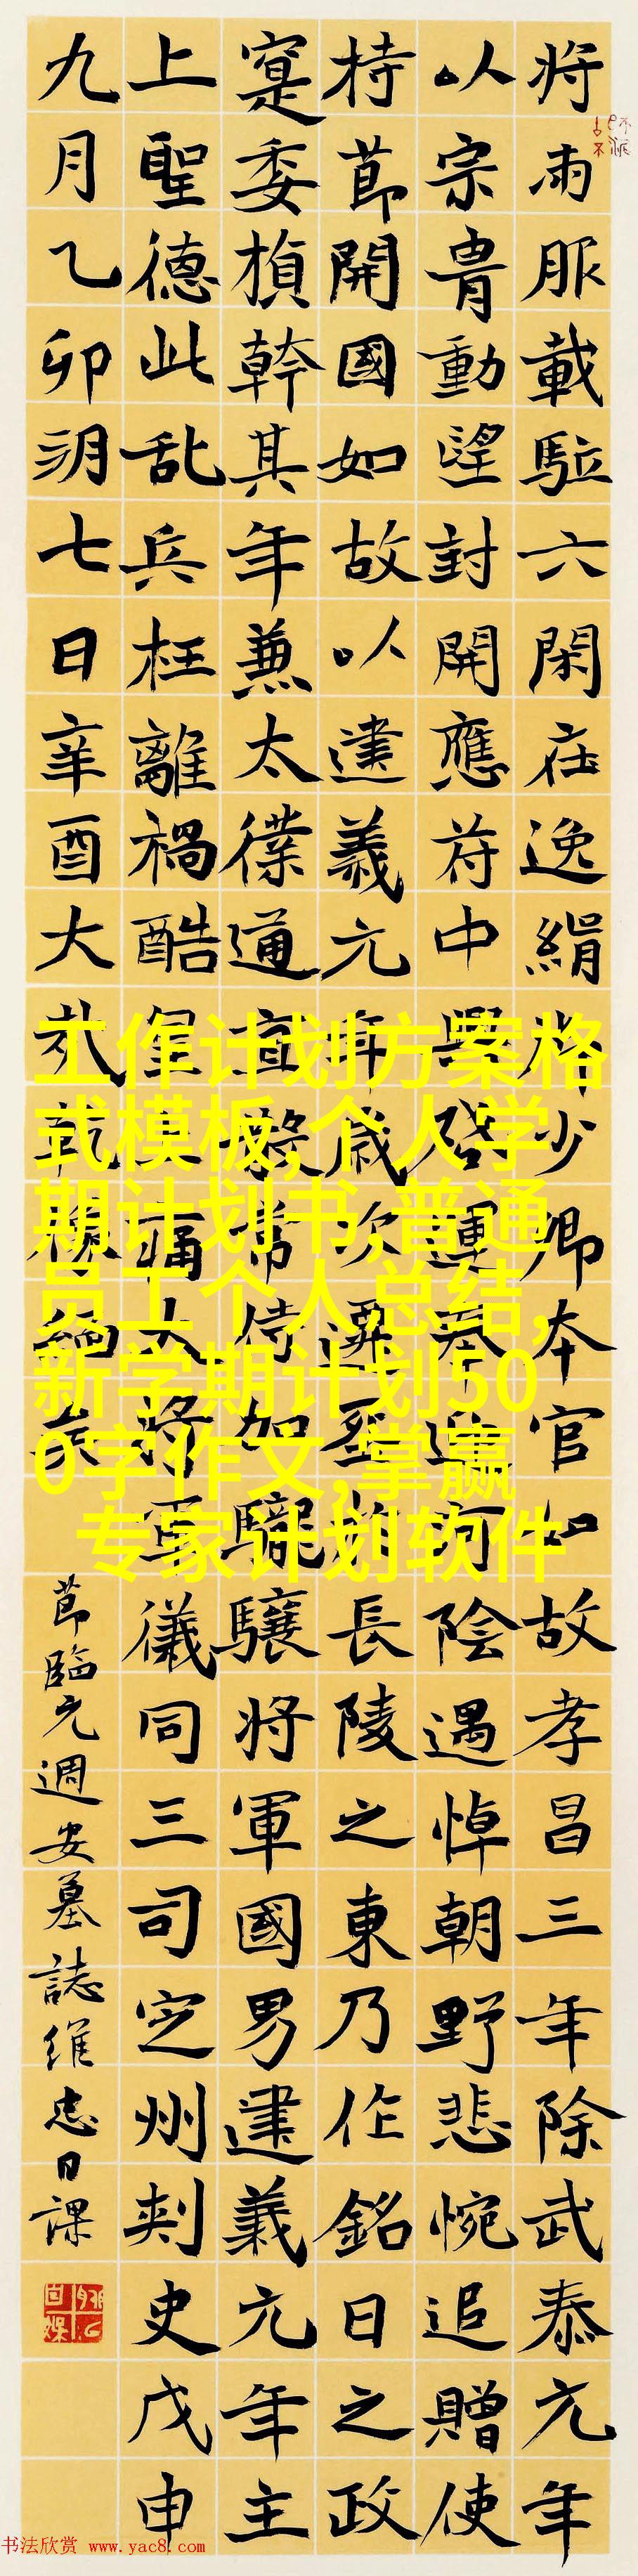 将雨服載駈六閑在逸絹少卿本官如故孝昌三年除武泰元年
以宗胄動望封開應苻中興啓運奉迎河陰遇悼朝野悲惋追贈使
持節開國如故以建義元年歲次長陵之東乃作銘曰之政
寔委楨幹其年兼太僕通直常侍加驤将軍國男建義元年主
上聖德此乱兵枉離禍酷痛大将軍儀同三司定州刾史戊申
九月乙卯朔七日辛酉大哉乾
節臨元週安墓誌維忠日課
工作计划方案格
式模板,个人学
期计划书,普通
员工个人总结,
新学期计划50
0字作文,掌赢
专家计划软件
书法欣赏 www.yac8.com